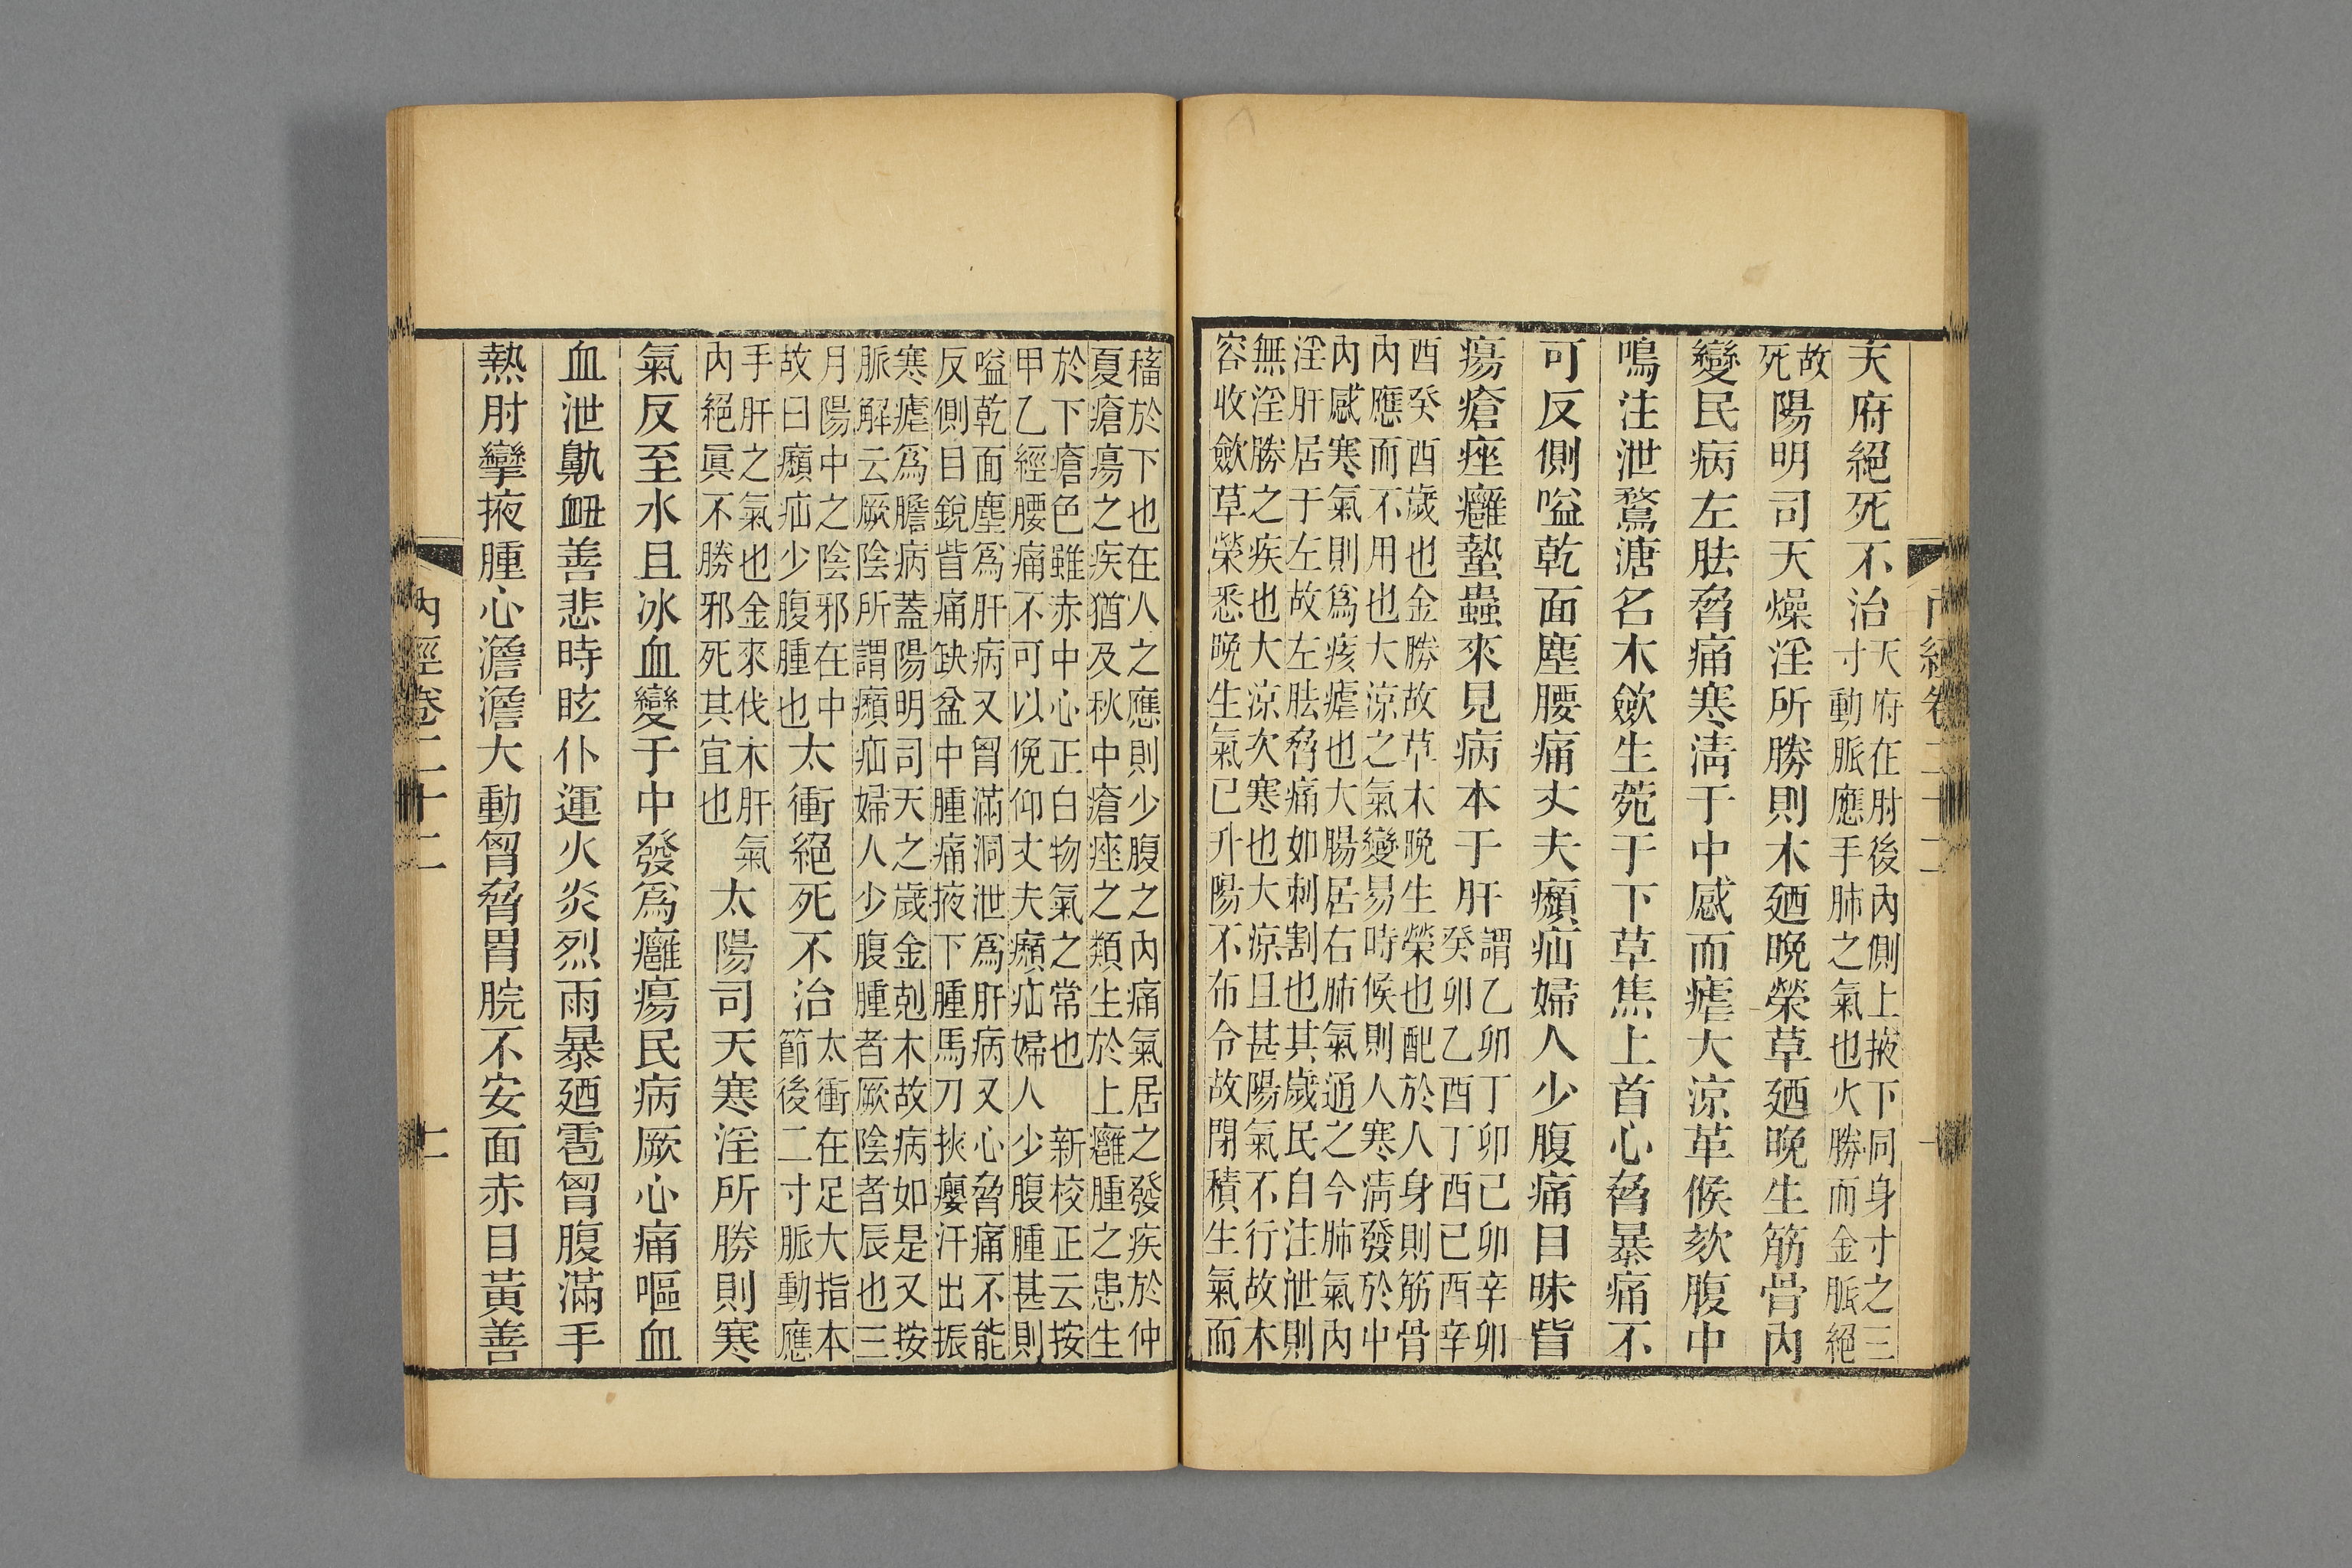 天府絕死不治
天府在肘後內側上掖下同身寸之三
寸動脈應手肺之氣也火勝而金脈絕
故
死
陽明司天燥淫所勝則木廼晚榮草廼晚生筋骨內
變民病左胠脅痛寒淸于中感而瘧大涼革候欬腹中
鳴注泄鶩溏名木斂生菀于下草焦上首心脅暴痛不
可反側嗌乾面塵腰痛丈夫㿗疝婦人少腹痛目昧眥
瘍瘡痤癰蟄蟲來見病本于肝
謂乙卯丁卯己卯辛卯
癸卯乙酉丁酉己酉辛
酉癸酉歲也金勝故草木晚生榮也配於人身則筋骨
內應而不用也大涼之氣變易時候則人寒淸發於中
內感寒氣則爲痎瘧也大腸居右肺氣通之今肺氣內
淫肝居于左故左胠脅痛如刺割也其歲民自注泄則
無淫勝之疾也大涼次寒也大涼且甚陽氣不行故木
容收斂草榮悉晚生氣已升陽不布令故閉積生氣而
稸於下也在人之應則少腹之內痛氣居之發疾於仲
夏瘡瘍之疾猶及秋中瘡痤之類生於上癰腫之患生
於下瘡色雖赤中心正白物氣之常也 新校正云按
甲乙經腰痛不可以俛仰丈夫㿗疝婦人少腹腫甚則
嗌乾面塵爲肝病又胷滿洞泄爲肝病又心脅痛不能
反側目銳眥痛缺盆中腫痛掖下腫馬刀挾癭汗出振
寒瘧爲膽病蓋陽明司天之歲金剋木故病如是又按
脈解云厥陰所謂㿗疝婦人少腹腫者厥陰者辰也三
月陽中之陰邪在中
故曰㿗疝少腹腫也
太衝絕死不治
太衝在足大指本
節後二寸脈動應
手肝之氣也金來伐木肝氣
內絕眞不勝邪死其宜也
太陽司天寒淫所勝則寒
氣反至水且冰血變于中發爲癰瘍民病厥心痛嘔血
血泄鼽衄善悲時眩仆運火炎烈雨暴廼雹胷腹滿手
熱肘攣掖腫心澹澹大動胷脅胃脘不安面赤目黃善
內經卷二十二